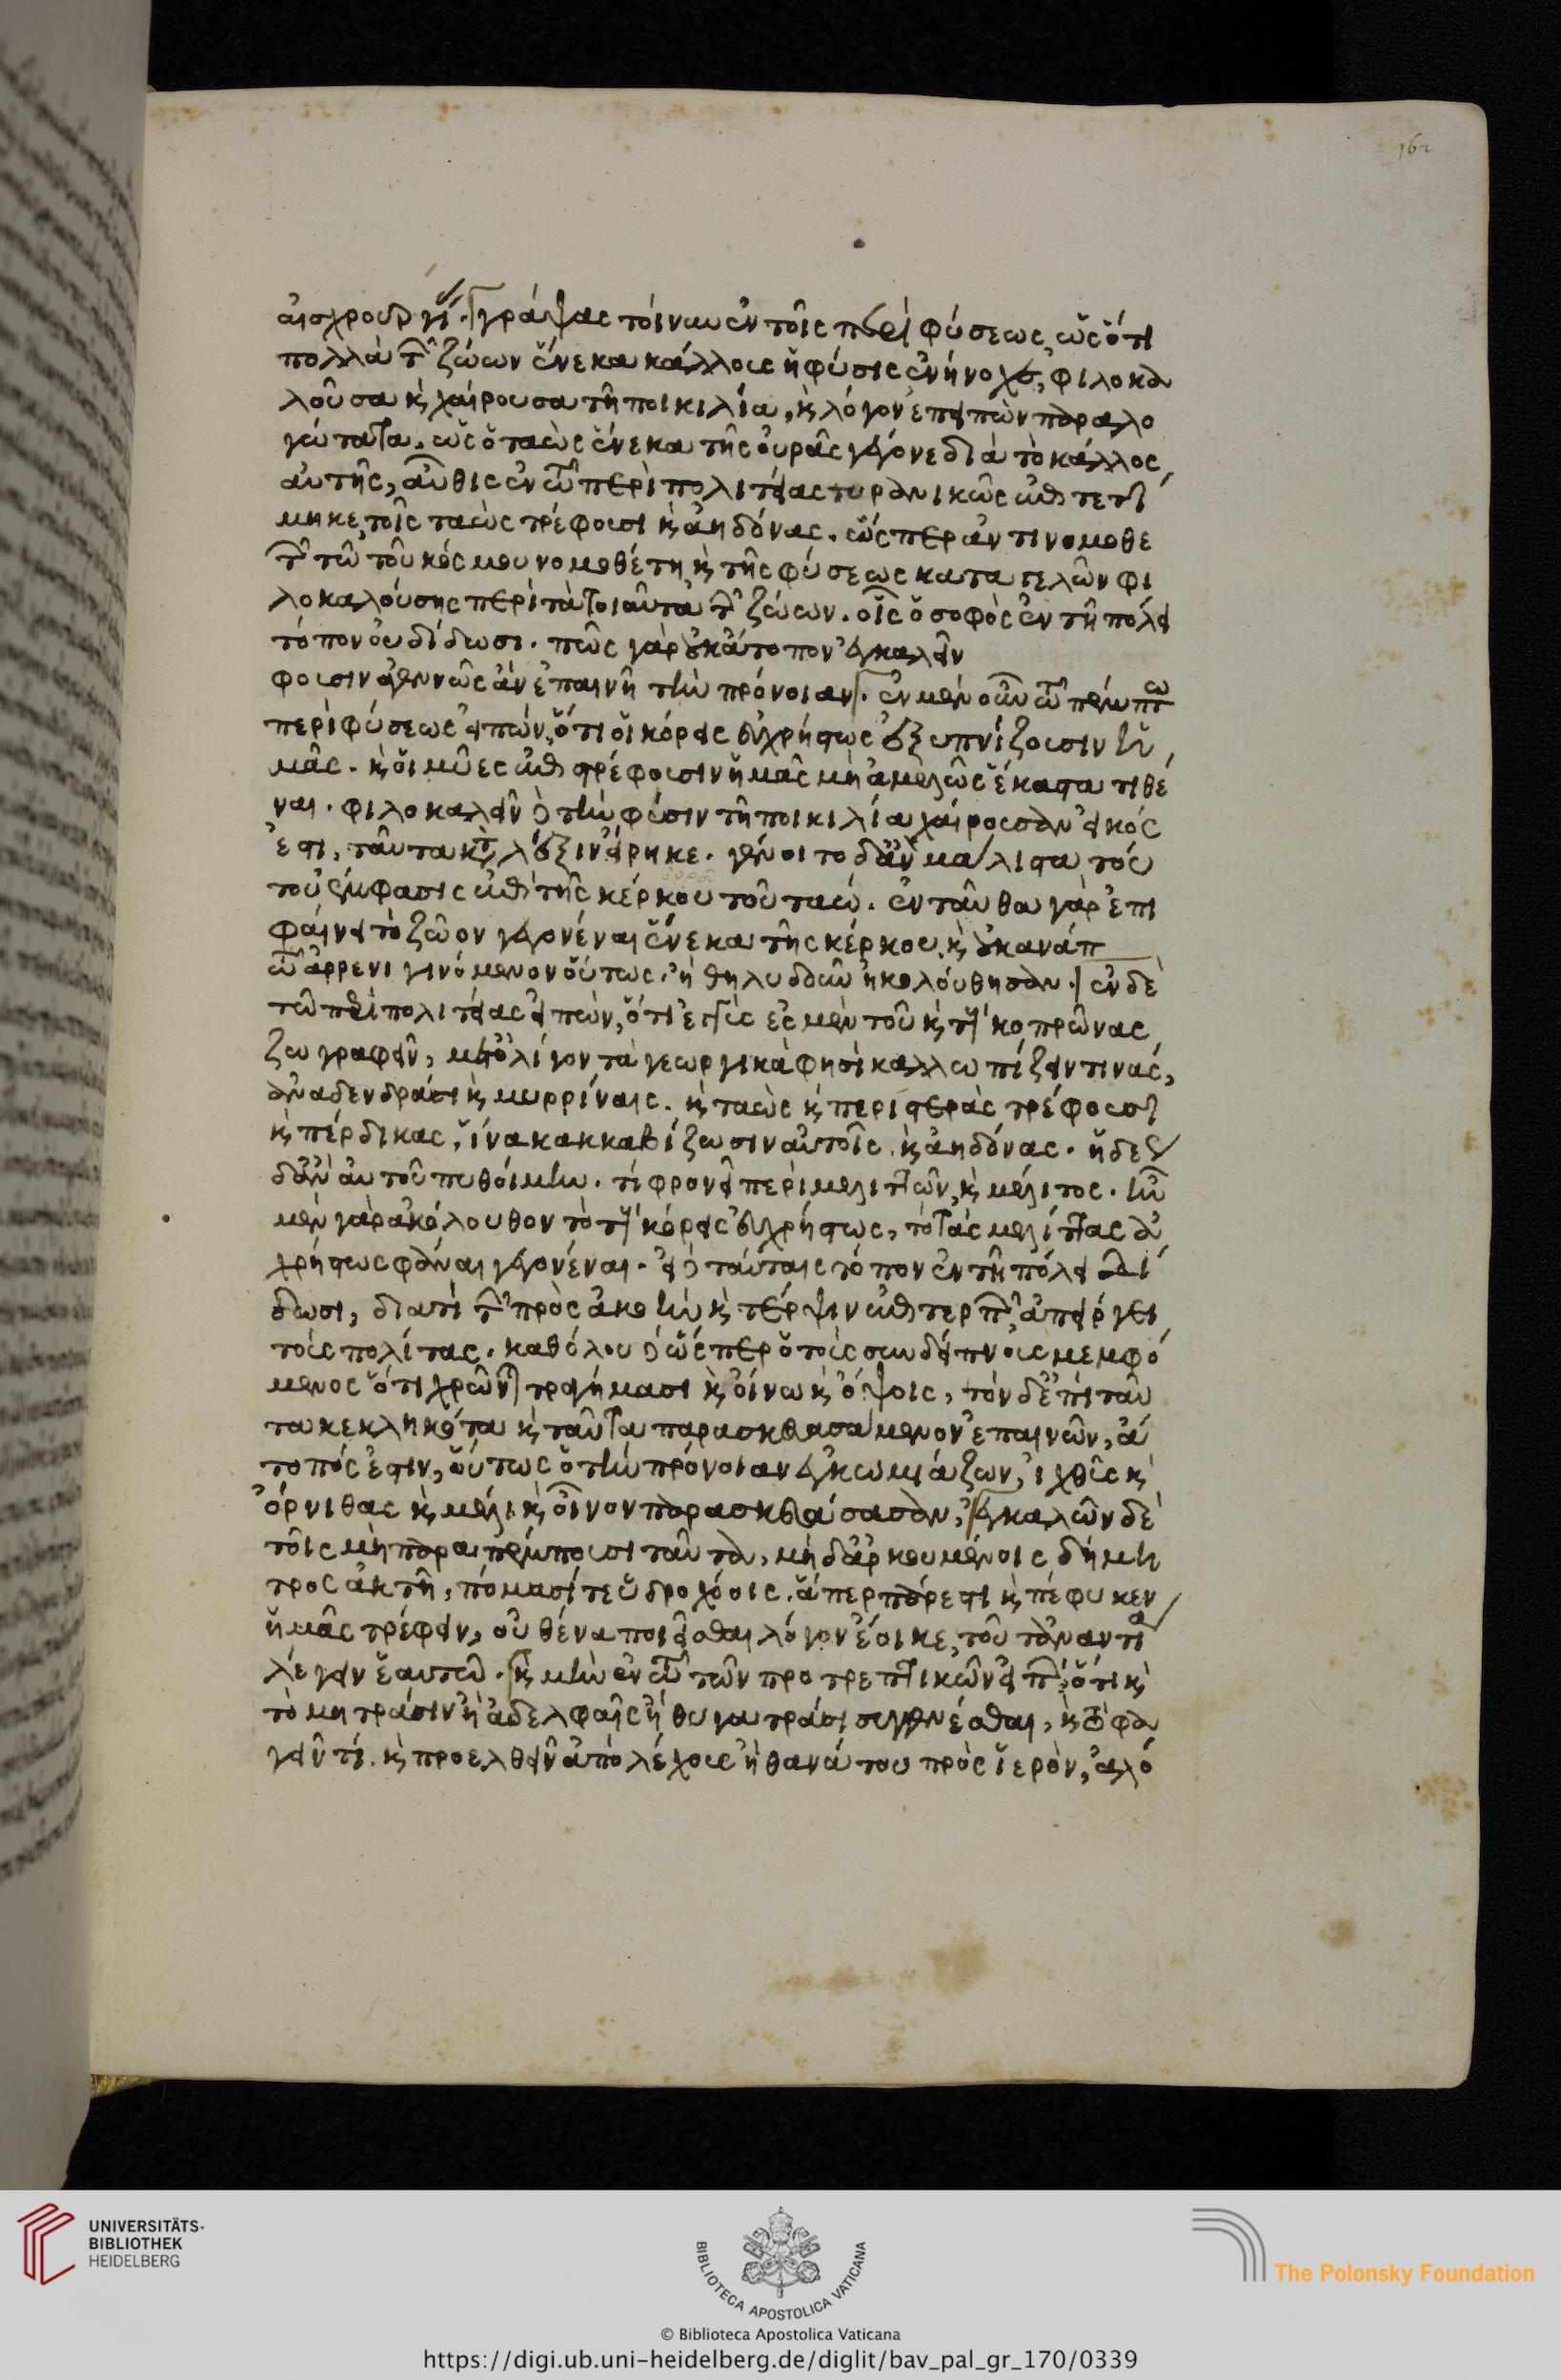 162
αἰσχρουργεῖ. γράψας τοίνυν ἐν τοῖς περὶ φύσεως, ὡς ὅτι
πολλὰ τῶν ζώων ἕνεκα κάλλους ἡ φύσις ἐνήνοχε, φιλοκα
λοῦσα κ χαίρουσα τῇ ποικιλία, κ λόγον ἐπειπὼν παραλο
γώτατα, ὡς ὁ ταὼς ἕνεκα τῆς οὐρᾶς γέγονε διὰ τὸ κάλλος
αὐτῆς, αὖθις ἐν τῶ περὶ πολιτείας νεανικῶς ἐπιτετί
μηκε τοῖς ταὼς τρέφουσι κ ἀηδόνας. ὥσπερ ἀντινομοθε
τῶν τῶ τοῦ κόσμου νομοθέτη, κ τῆς φύσεως καταγελῶν φι
λοκαλούσης περὶ τὰ τοιαῦτα τῶν ζώων. οἷς ὁ σοφὸς ἐν τῇ πόλει
τόπον οὐ δίδωσι. πῶς γὰρ οὐκ ἄτοπον ἐγκαλεῖν
φουσιν ἃ γεννῶσαν ἐπαινῆ τὴν πρόνοιαν. ἐν μὲν οὖν τῶ πέμπτω
περὶ φύσεως εἰπών, ὅτι οἱ κόρεις εὐχρήστως ἐξυπνίζουσιν ἡ
μᾶς. κ οἱ μύες ἐπιστρέφουσιν ἡμᾶς μὴ ἀμελῶς ἕκαστα τιθέ
ναι. φιλοκαλεῖν δὲ τὴν φύσιν τῇ ποικιλία χαίρουσαν εἰκός
ἐστι, ταῦτα κατὰ λέξιν εἴρηκε. γένοιτο δ' ἂν μάλιστα τού
του ἔμφασις ἐπὶ τῆς κέρκου τοῦ ταώ. ἐνταῦθα γὰρ ἐπι
φαίνει τὸ ζῶον γεγονέναι ἕνεκα τῆς κέρκου, κ οὐκ ἀνάπ
τῶ ἄρρενι γινόμενον οὕτως. ἡ θήλυ συν ἠκολούθησαν. ἐν δὲ
τῶ περὶ πολιτείας εἰπών, ὅτι ἐγγὺς ἐσμὲν τοῦ κ τοὺς κοπρῶνας
ζωγραφεῖν, μετ' ὀλίγον τὰ γεωργικὰ φησὶ καλλωπίζειν τινάς,
ἀναδενδράσι κ μυρρίναις. κ ταὼς κ περιστερὰς τρέφουσι
κ πέρδικας, ἵνα κακκαβίζωσιν αὐτοῖς, κ ἀηδόνας. ἡδέως
δ' ἂν αὐτοῦ πυθοίμην. τί φρονεῖ περὶ μελιττῶν, κ μέλιτος. ἦν
μὲν γὰρ ἀκόλουθον τὸ τοὺς κόρεις εὐχρήστως, τὸ τὰς μελίττας ἀ
χρήστως φάναι γεγονέναι. εἰ δὲ ταύταις τόπον ἐν τῇ πόλει δί
δωσι, διατί τῶν πρὸς ἀκοὴν κ τέρψιν ἐπιτερπῶν ἀπείργει
τοὺς πολίτας. καθόλου δὲ ὥσπερ ὁ τοὺς συνδείπνους μεμφό
μενος ὅτι χρῶνται τραγήμασι κ οἴνω κ ὄψοις, τὸν δ' ἐπὶ ταῦ
τα κεκληκότα κ ταῦτα παρασκευασάμενον ἐπαινῶν, ἄ
τοπός ἐστιν, οὕτως ὁ τὴν πρόνοιαν ἐγκωμιάζων, ἰχθῦς κ
ὄρνιθας κ μέλι κ οἶνον παρασκευάσασαν, ἐγκαλῶν δὲ
τοῖς μὴ παραπέμπουσι ταῦτα, μηδ' ἀρκουμένοις δήμη
τρος ἀκτῇ, πόμασί τε ὑδροχόοις. ἅπερ πάρεστι κ πέφυκεν
ἡμᾶς τρέφειν, οὐθένα ποιεῖσθαι λόγον ἔοικε, τοῦ τἀναντία
λέγειν ἑαυτῶ. κ μὴν ἐν τῶ τῶν προτρεπτικῶν εἰπών, ὅτι κ
τὸ μητράσιν ἢ ἀδελφαῖς ἢ θυγατράσι συγγενέσθαι, κ τὸ φα
γεῖν τί. κ προελθεῖν ἀπὸ λέχους ἢ θανάτου πρὸς ἱερὸν, ἀλό
UNIVERSITÄTS-
BIBLIOTHEK
HEIDELBERG
BIBLIOTECA APOSTOLICA VATICANA
The Polonsky Foundation
© Biblioteca Apostolica Vaticana
https://digi.ub.uni-heidelberg.de/diglit/bav_pal_gr_170/0339